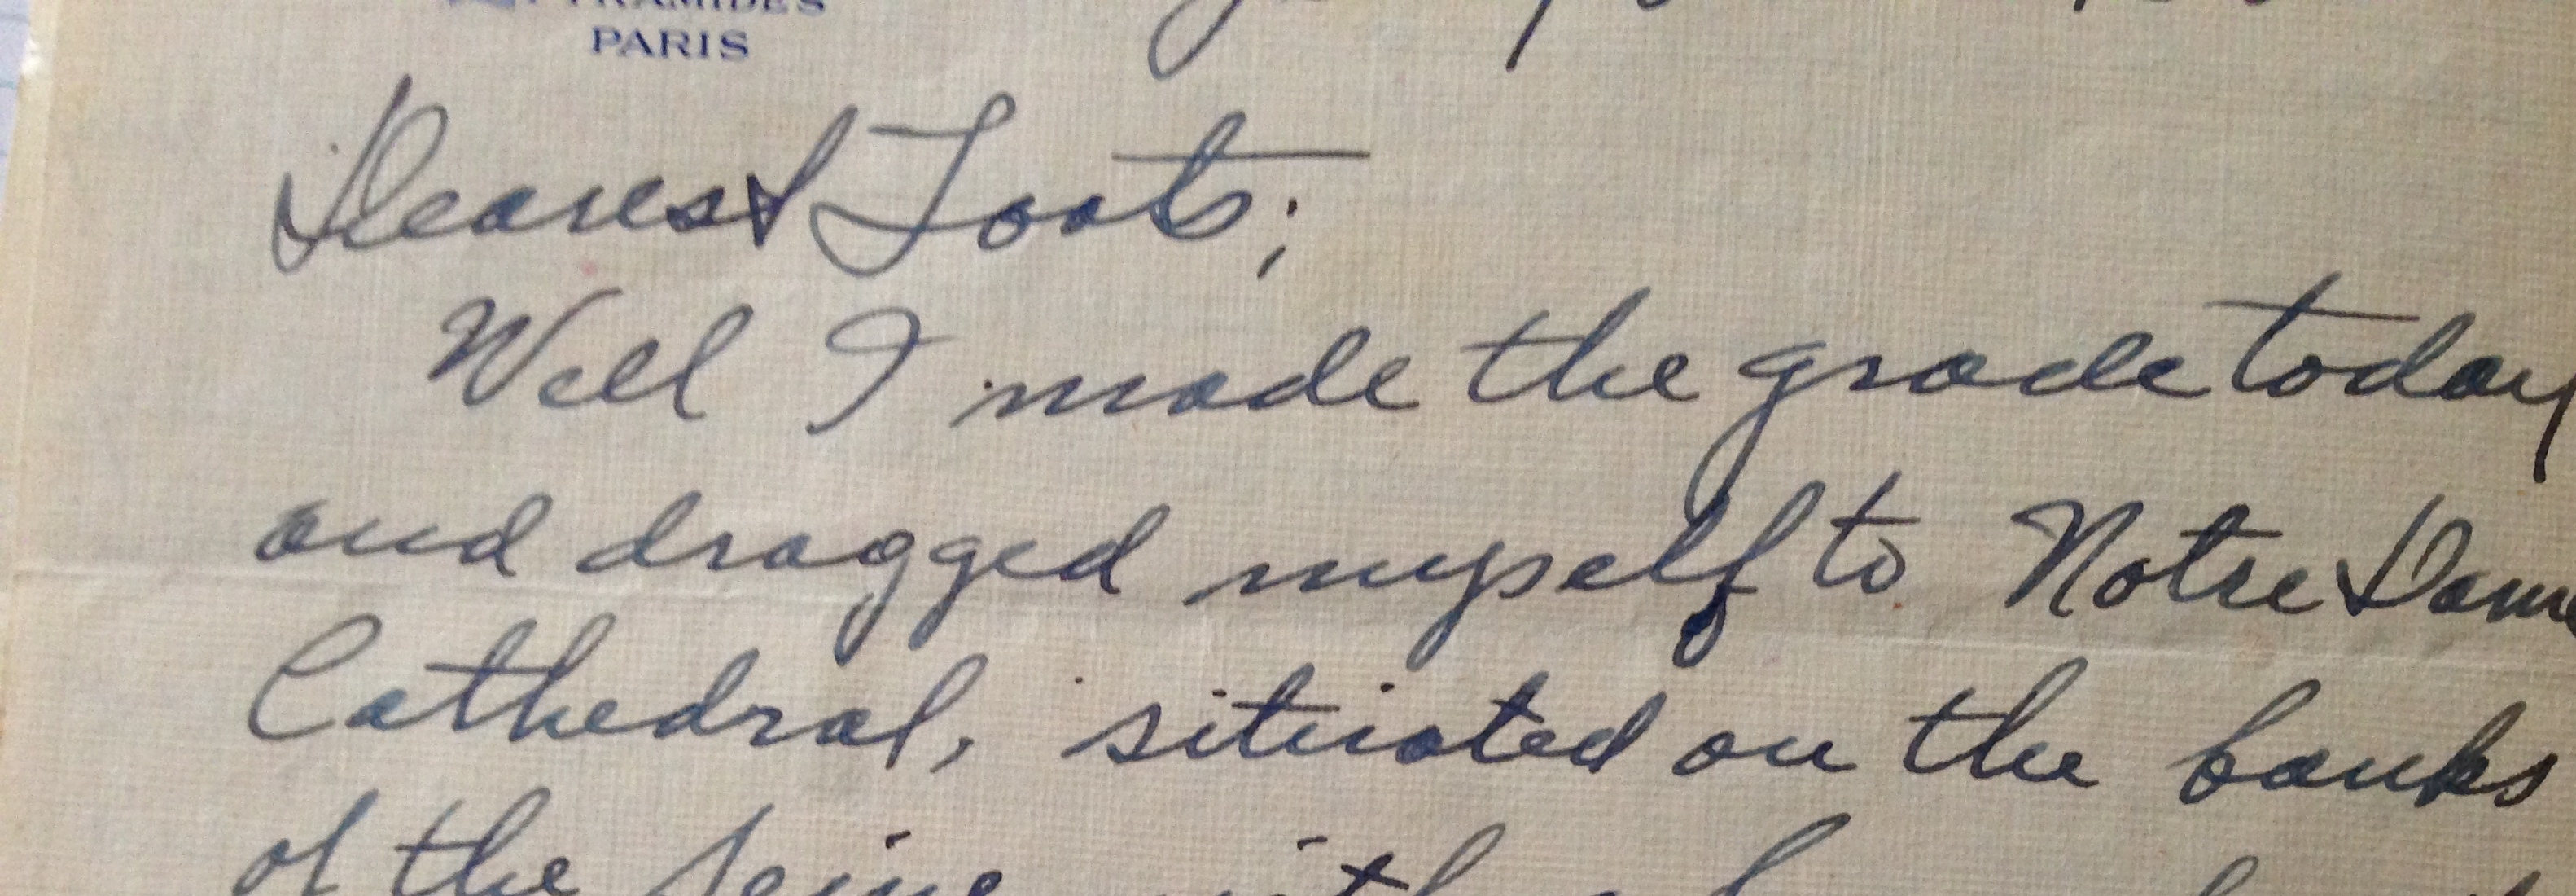 PYRAMIDES
PARIS
Dearest Toots;
Well I made the grade today
and dragged myself to Notre Dame
Cathedral, situated on the banks
of the Seine with